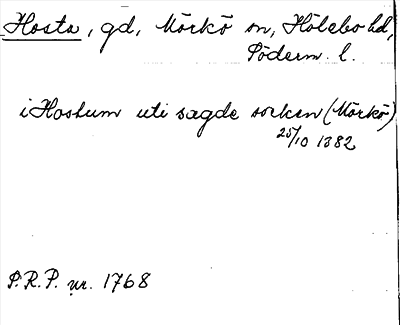 Hosta, gd, Mörkö sn, Hölebo hd,
Söderm. l.
i Hostum uti sagde sorken (Mörkö)
25/10 1382
P.R.P. nr. 1768